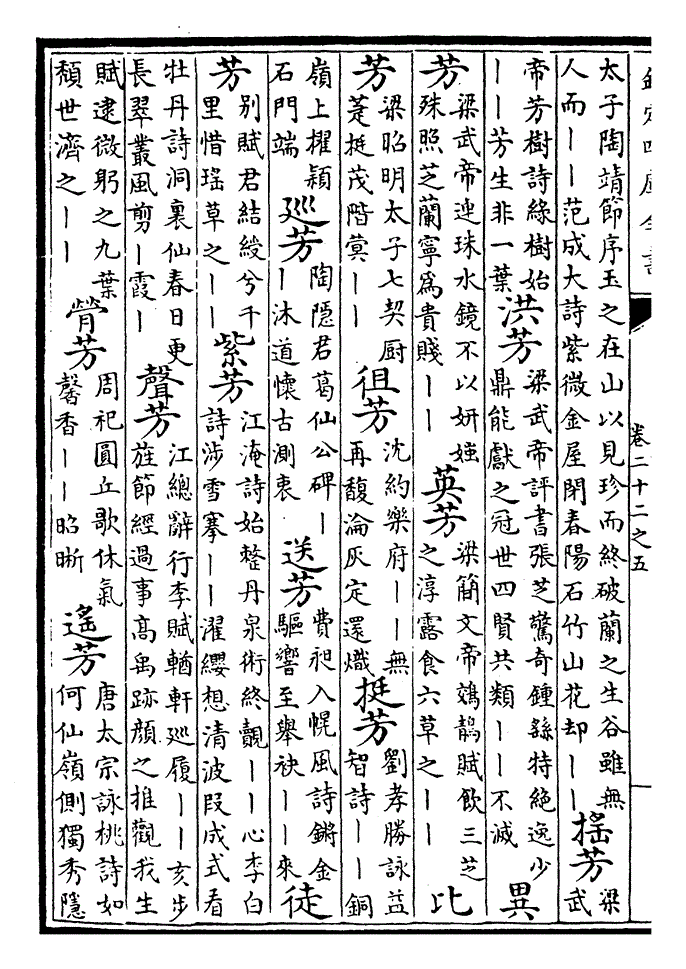 欽定四庫全書
卷二十二之五
太子陶靖節序玉之在山以見珍而終破蘭之生谷雖無
人而——范成大詩紫微金屋閉春陽石竹山花却——
搖芳
梁
武
帝芳樹詩緑樹始
——芳生非一葉
洪芳
梁武帝評書張芝驚奇鍾繇特絶逸少
鼎能獻之冠世四賢共類——不滅
異
芳
梁武帝連珠水鏡不以妍媸
殊照芝蘭寧為貴賤——
英芳
梁簡文帝鵁鶄賦飲三芝
之淳露食六草之——
比
芳
梁昭明太子七契厨
萐挺茂階蓂——
徂芳
沈約樂府——無
再馥淪灰定還熾
挺芳
劉孝勝詠益
智詩——銅
嶺上擢穎
石門端
巡芳
陶隠君葛仙公碑—
—沐道懷古測衷
送芳
費昶入幌風詩鏘金
驅響至舉袂——來
徒
芳
别賦君結綬兮千
里惜瑤草之——
紫芳
江淹詩始整丹泉術終覿——心李白
詩涉雪搴——濯纓想清波段成式看
牡丹詩洞裏仙春日更
長翠叢風剪—霞—
聲芳
江總辭行李賦輶軒巡履——亥步
旌節經過事高禹跡顔之推觀我生
賦逮微躬之九葉
頽世濟之——
膋芳
周祀圓丘歌休氣
馨香——昭晰
遥芳
唐太宗詠桃詩如
何仙嶺側獨秀隠